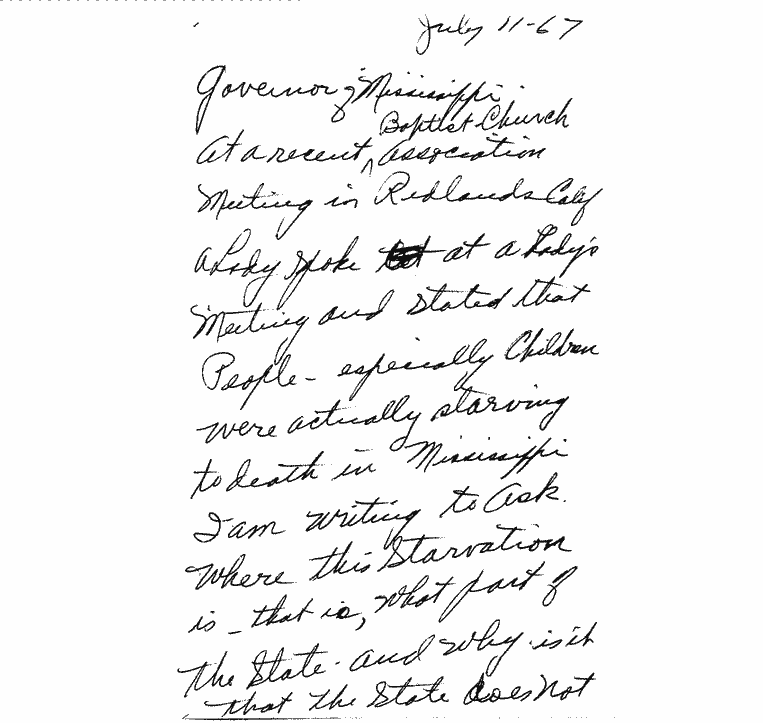 July 11-67
Governor of Mississippi.
Baptist Church
At a recent ^ Association
Meeting in Redlands Calif
a Lady spoke at a Lady's
Meeting and stated that
People - especially Children
were actually starving
to death in Mississippi
I am writing to Ask.
Where this Starvation
is - that is, what part of
the State. and why is it
that the State does Not